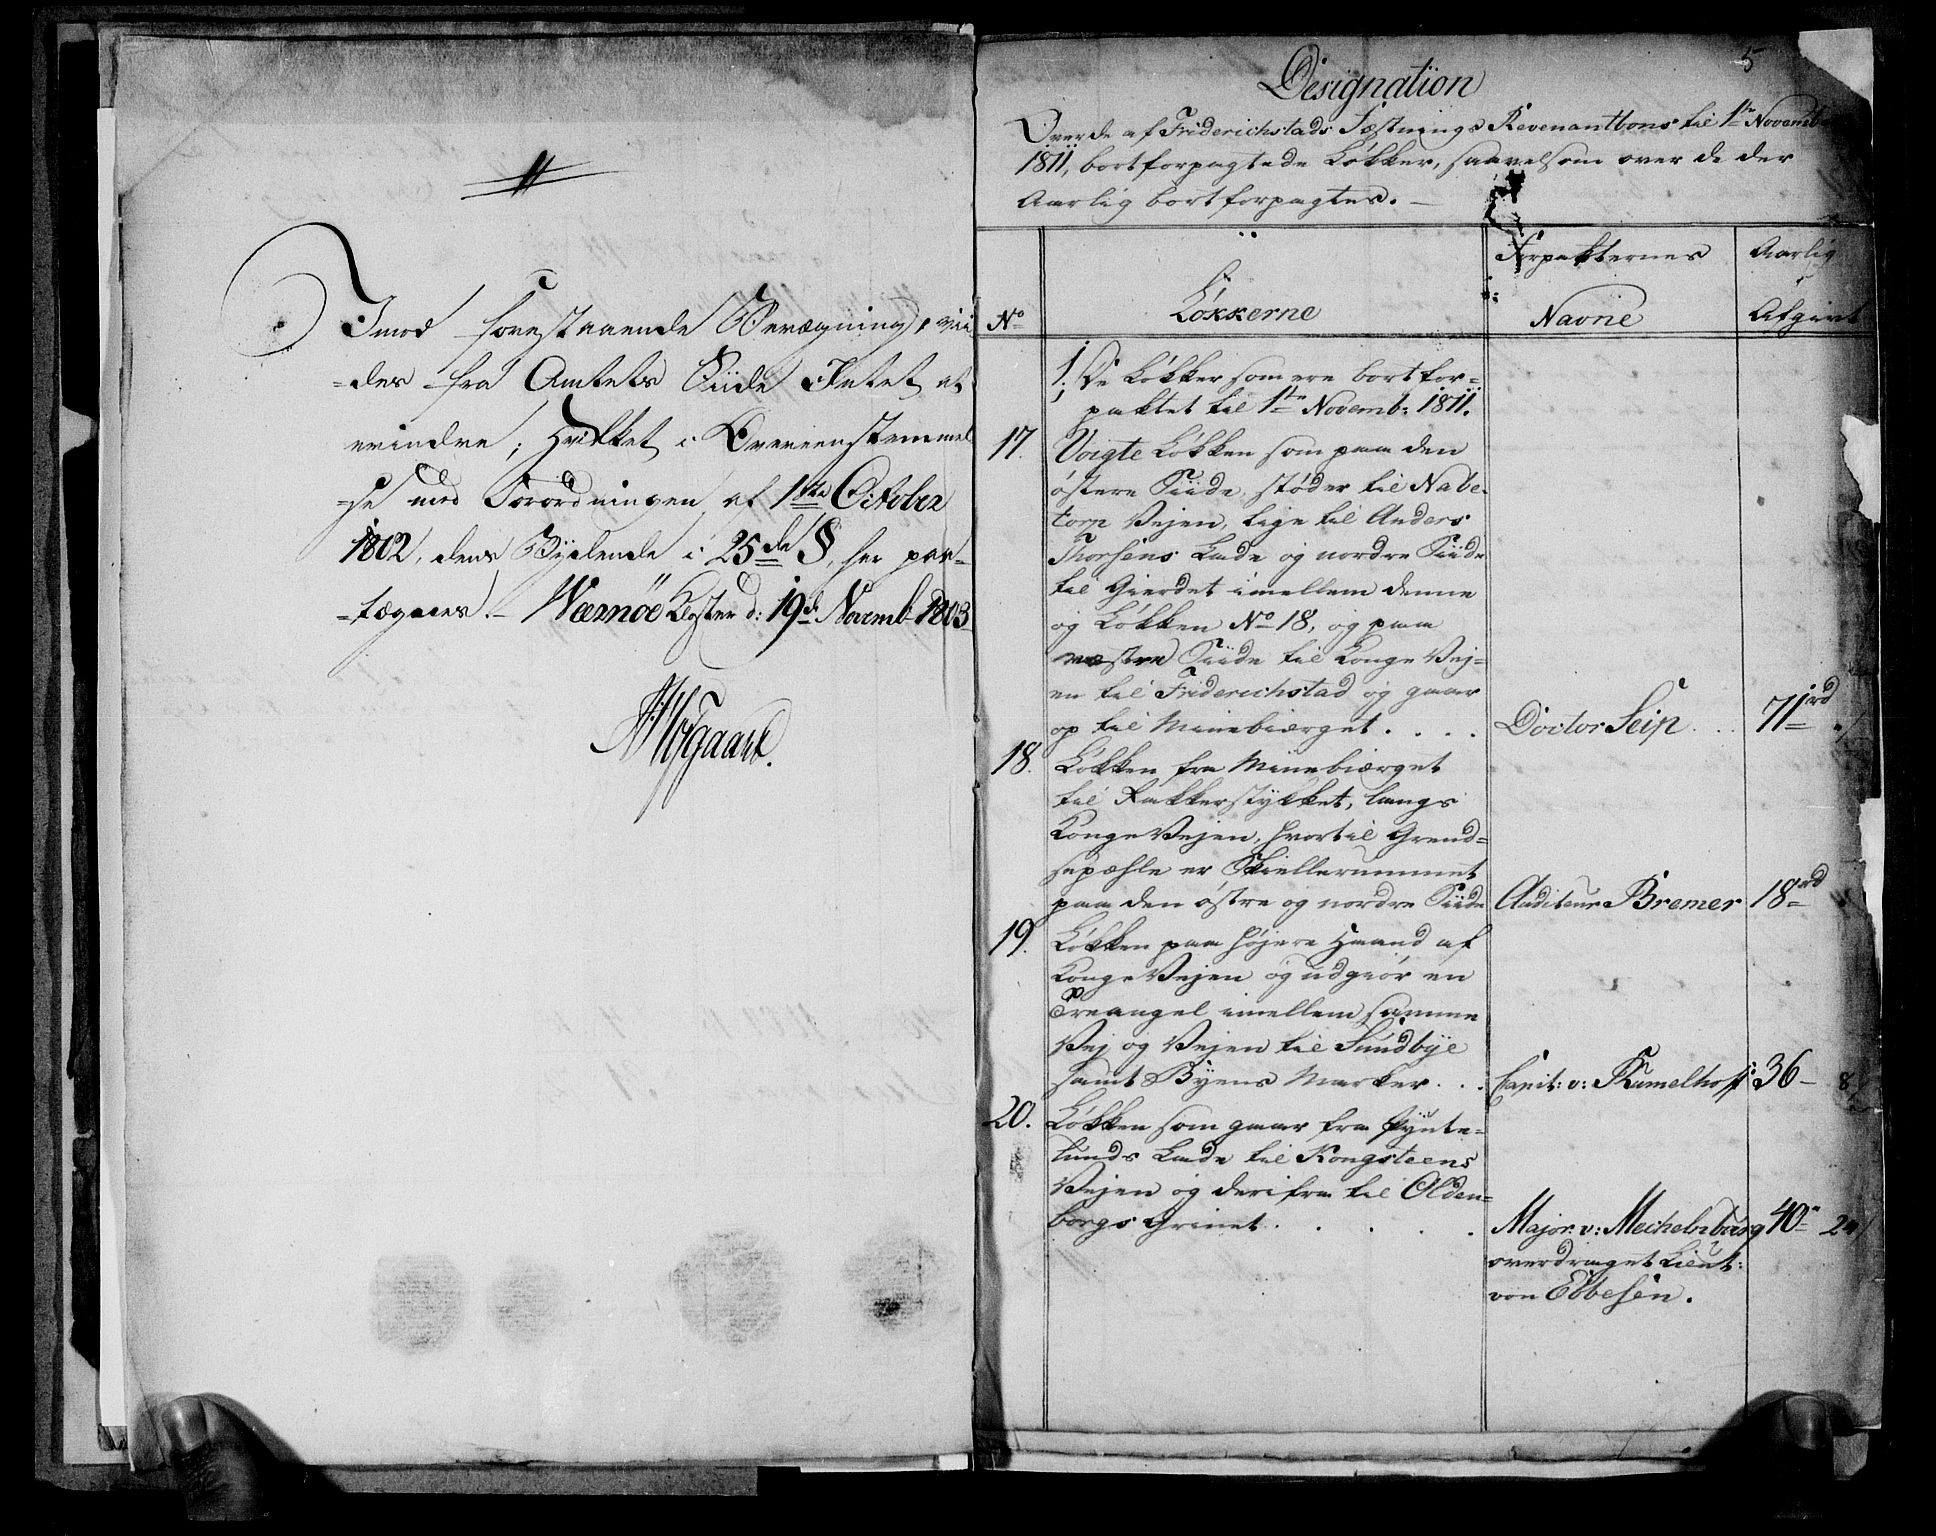 Imod forestaaende Beregning, vii
-des fra Amtets Siide Intet at
erindre; hvilket i Overeenstemmel
-se med Forordningen af 1ste October
1802, dens Bydende i 25de §, her paa-
-tegnes. - Wærnöe Kloster d: 19de Novemb 1803
5
Designation
Over de af Friderichstads Fæstnings Revenantbons til 1te Novembr
1811, bortforpagtede Løkker, saavelsom over de der
Aarlig bortforpagtes. —
No
Løkkerne
Forpakternes
Navne
Aarlig
Afgivt
1, De Løkker som ere bortfor-
paktet til 1te Novemb: 1811.
17. Voigte Løkken som paa den
østere Siide, støder til Nabe-
torp Vejen, lige til Anders
Thorsens Lade og nordre Siide
til Gierdet imellem denne
og Løkken No 18, og paa
væstre Siide til Konge Vej-
en til Friderichstad og gaar
op til Minebierget . . . . Doctor Seip . . . 71 rd
18. Løkken fra Minebierget
til Rakkerstykket, langs
Konge Vejen, hvortil Grend-
sepæhle er Skiellerummet
paa den østre og nordre Siide Auditeur Bremer 18 rd
19. Løkken paa højere Haand af
Konge Vejen og udgiør en
Treangel imellem samme
Vej og Vejen til Sundbye
samt Byens Marker . . . Capit: v: Rumelhoff 36 – 8
20. Løkken som gaar fra Pynte-
lunds Lade til Kongsteens
Vejen og derifra til Olden-
borgs Grinet . . . . . Major v: Mechelnburg 40 – 24
overdraget Lieut:
von Ebbesen.